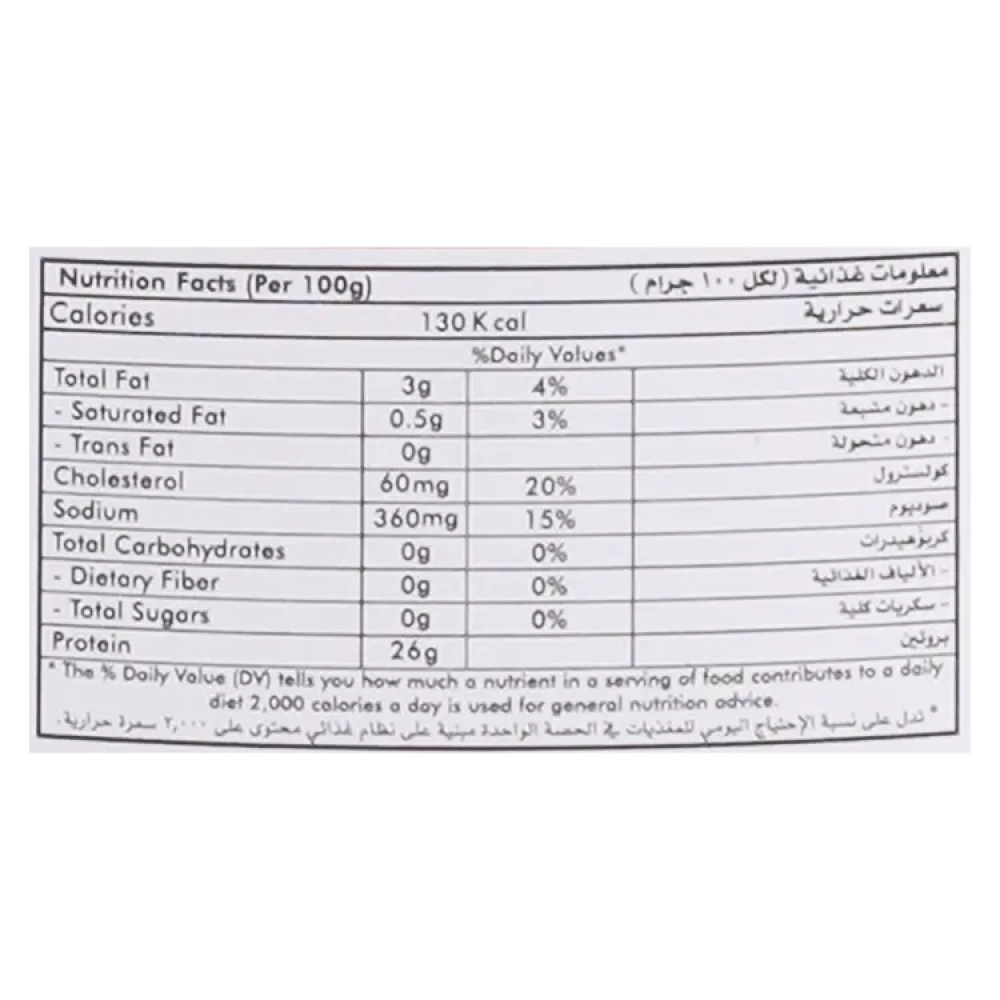 Nutrition Facts (Per 100g) معلومات غذائية (لكل ١٠٠ جرام)
Calories 130 Kcal سعرات حرارية
%Daily Values*
Total Fat 3g 4% الدهون الكلية
- Saturated Fat 0.5g 3% - دهون مشبعة
- Trans Fat 0g - دهون متحولة
Cholesterol 60mg 20% كولسترول
Sodium 360mg 15% صوديوم
Total Carbohydrates 0g 0% كربوهيدرات
- Dietary Fiber 0g 0% - الألياف الغذائية
- Total Sugars 0g 0% - سكريات كلية
Protein 26g بروتين
* The % Daily Value (DV) tells you how much a nutrient in a serving of food contributes to a daily
diet 2,000 calories a day is used for general nutrition advice.
* تدل على نسبة الإحتياج اليومي للمغذيات في الحصة الواحدة مبنية على نظام غذائي محتوى على ٢,٠٠٠ سعرة حرارية.